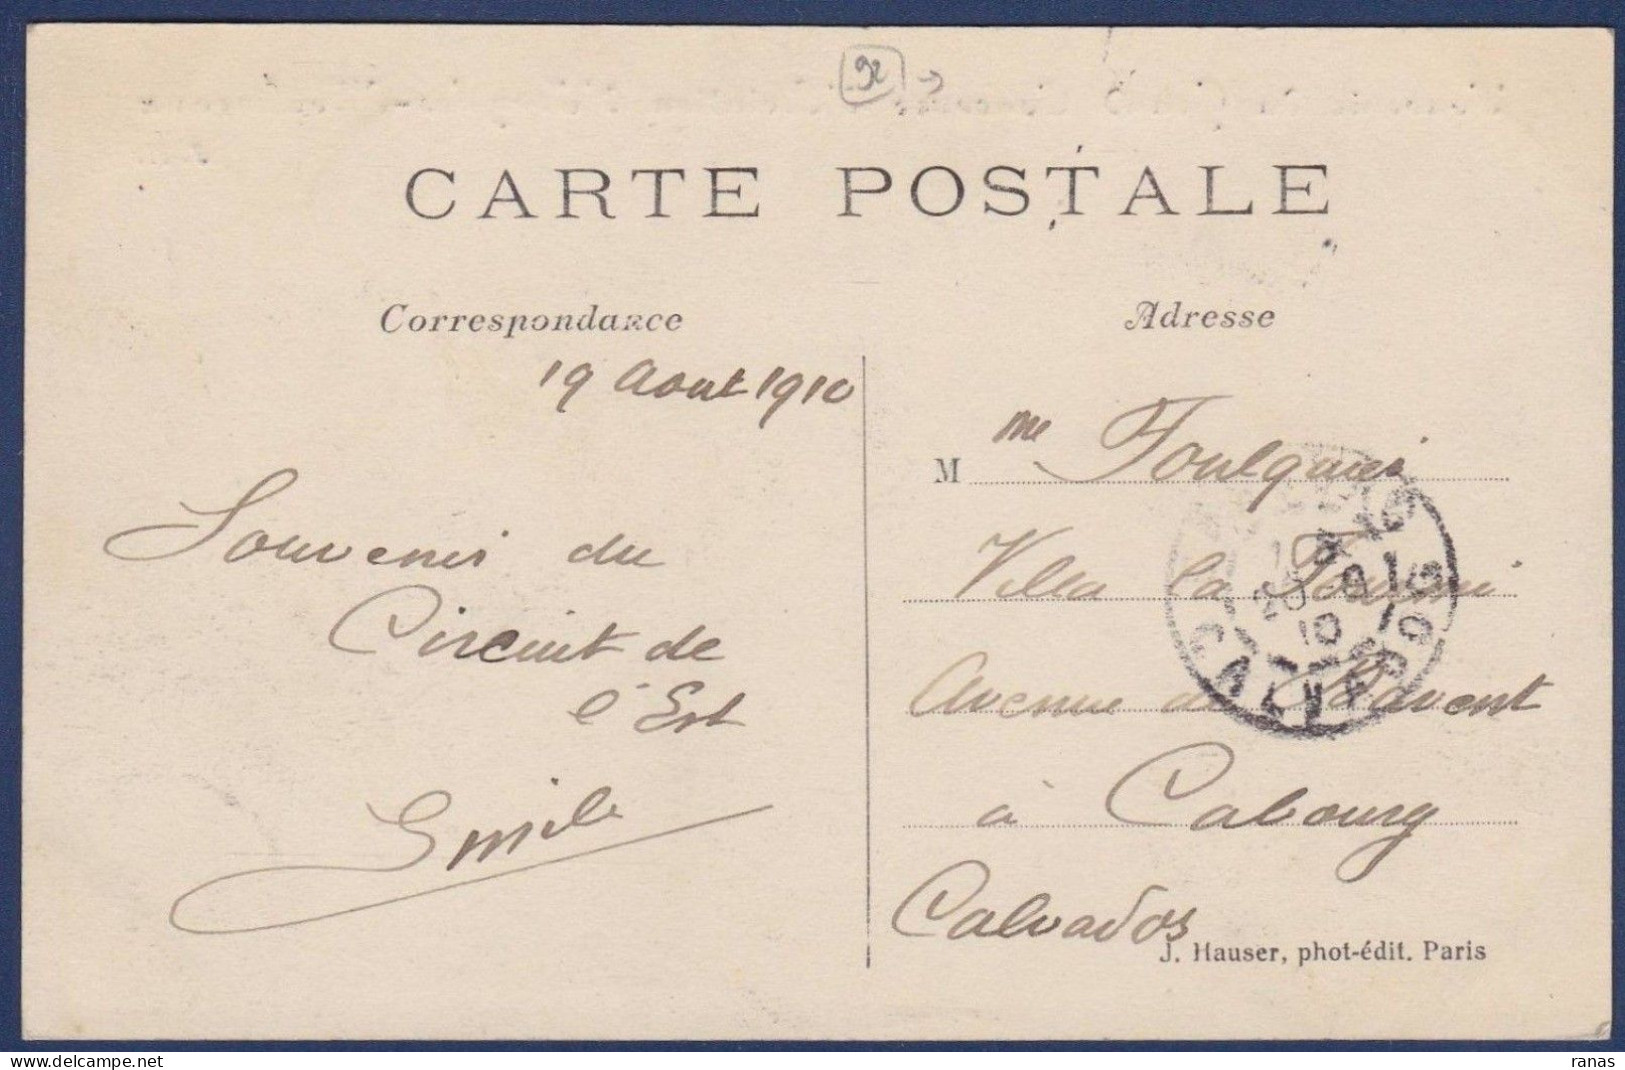 92 →
CARTE POSTALE
Correspondance
Adresse
19 Aout 1910
Souvenir du
Circuit de
l'Est
Emile
M me Foulquier
Villa la
Avenue de Bavent
à Cabourg
Calvados
CALVADOS
10
J. Hauser, phot-édit. Paris
ranas